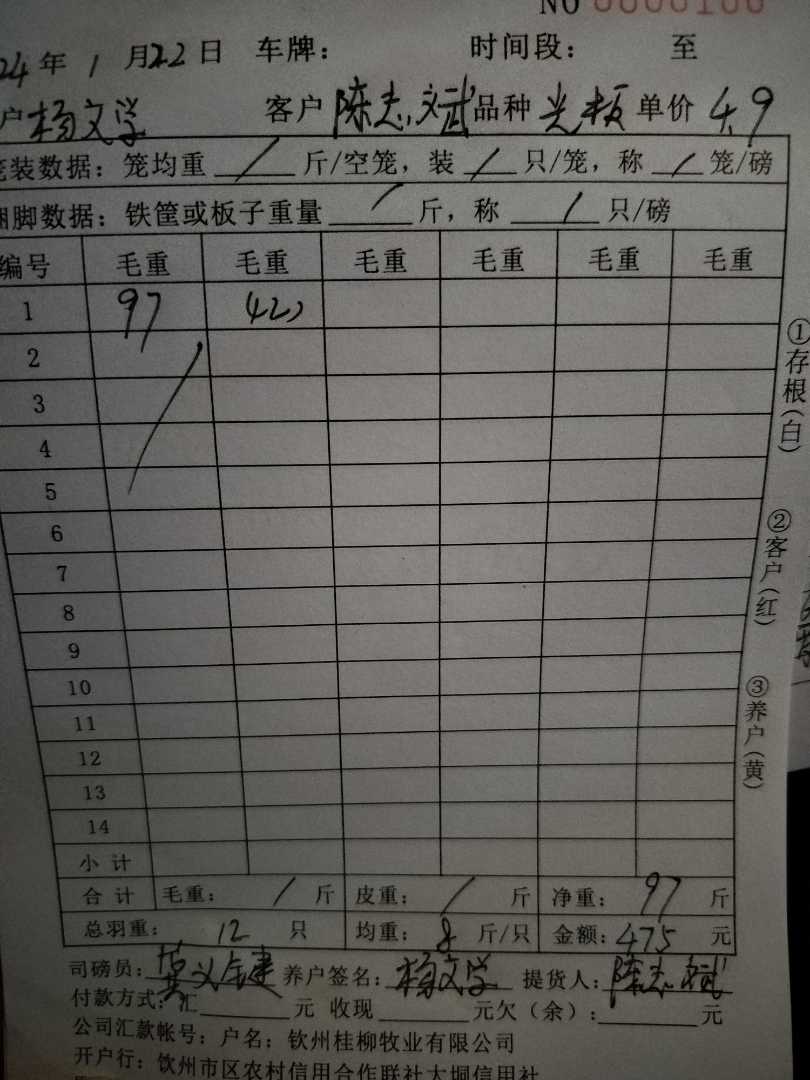 NO 0000100
24年1月22日 车牌: 时间段: 至
户 杨文学 客户 陈志斌 品种 光板 单价 4.9
笼装数据: 笼均重 / 斤/空笼, 装 / 只/笼, 称 / 笼/磅
捆脚数据: 铁筐或板子重量 / 斤, 称 / 只/磅
编号 毛重 毛重 毛重 毛重 毛重 毛重
1 97
2
3
4
5
6
7
8
9
10
11
12
13
14
小计
合计 毛重: / 斤 皮重: / 斤 净重: 97 斤
总羽重: 12 只 均重: 8 斤/只 金额: 475 元
司磅员: 养户签名: 杨文学 提货人: 陈志斌
付款方式: 汇 元 收现 元欠(余): 元
公司汇款帐号: 户名: 钦州桂柳牧业有限公司
开户行: 钦州市区农村信用合作联社大垌信用社
①存根(白)
②客户(红)
③养户(黄)